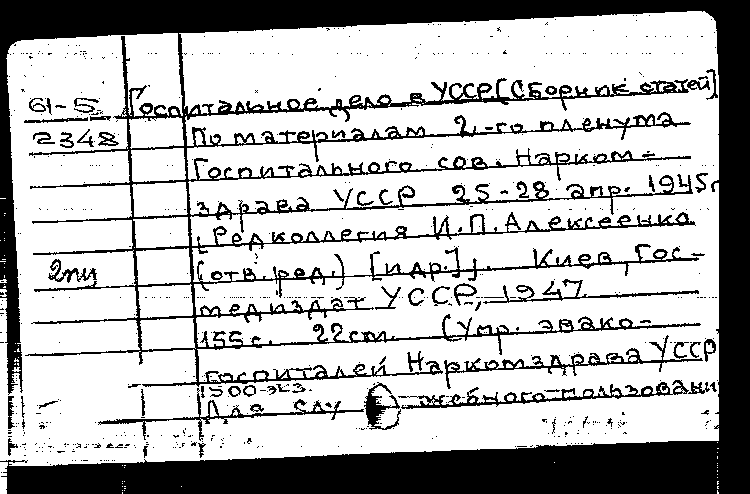 61-5 Госпитальное дело в УССР [Сборник статей]
2348 По материалам 2-го пленума
Госпитального сов. Нарком-
здрава УССР 25-28 апр. 1945г
[Редколлегия И.П.Алексеенко
2пц (отв. ред.) [и др.]]. Киев, Гос-
медиздат УССР, 1947.
155с. 22см. (Упр. эвако-
госпиталей Наркомздрава УССР
1500 экз.
Для служебного пользовани